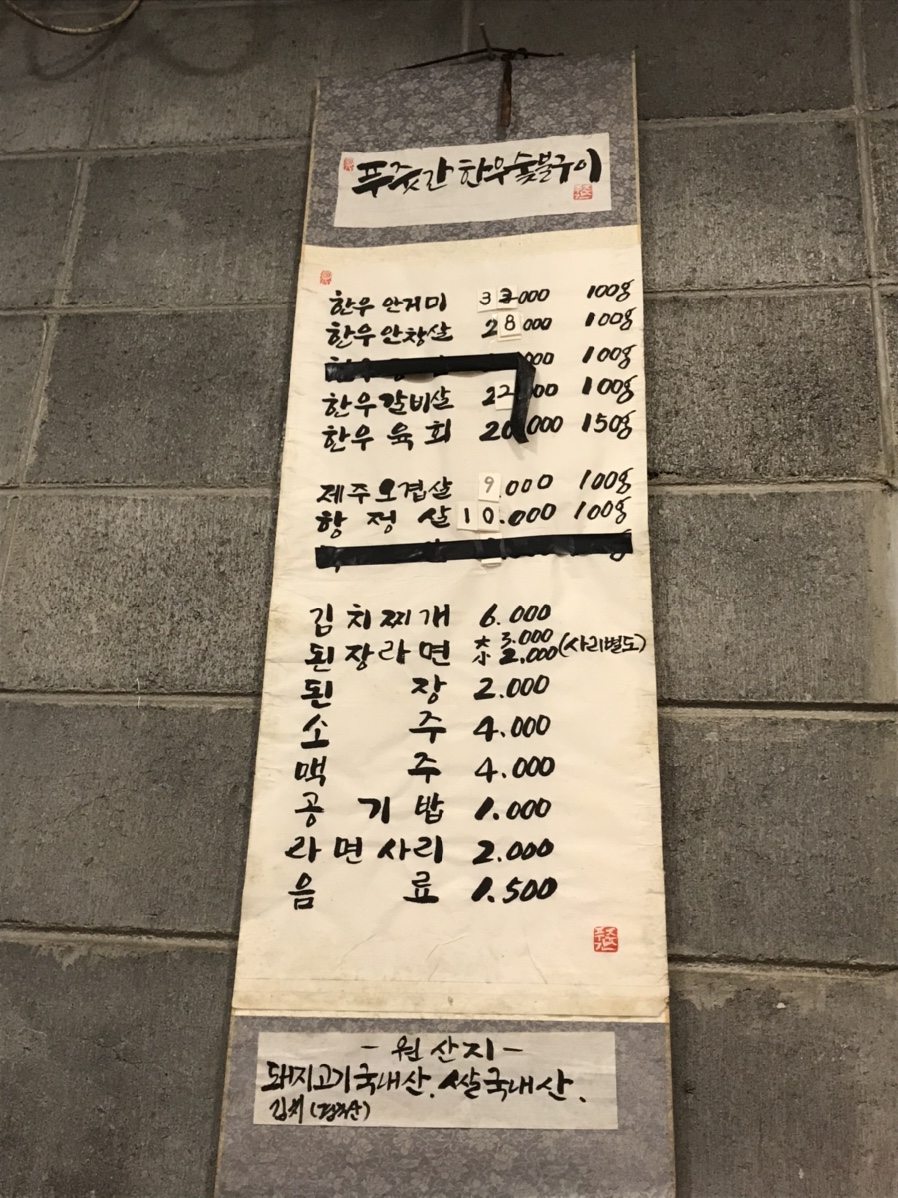 푸줏간 한우숯불구이
한우 안거미 33.000 100g
한우 안창살 28.000 100g
한우 000 100g
한우 갈비살 22.000 100g
한우 육회 20.000 150g
제주오겹살 9.000 100g
항정살 10.000 100g
김치찌개 6.000
된장라면 大 3.000
小 2.000 (사리별도)
된장 2.000
소주 4.000
맥주 4.000
공기밥 1.000
라면사리 2.000
음료 1.500
- 원산지 -
돼지고기국내산. 쌀국내산.
김치